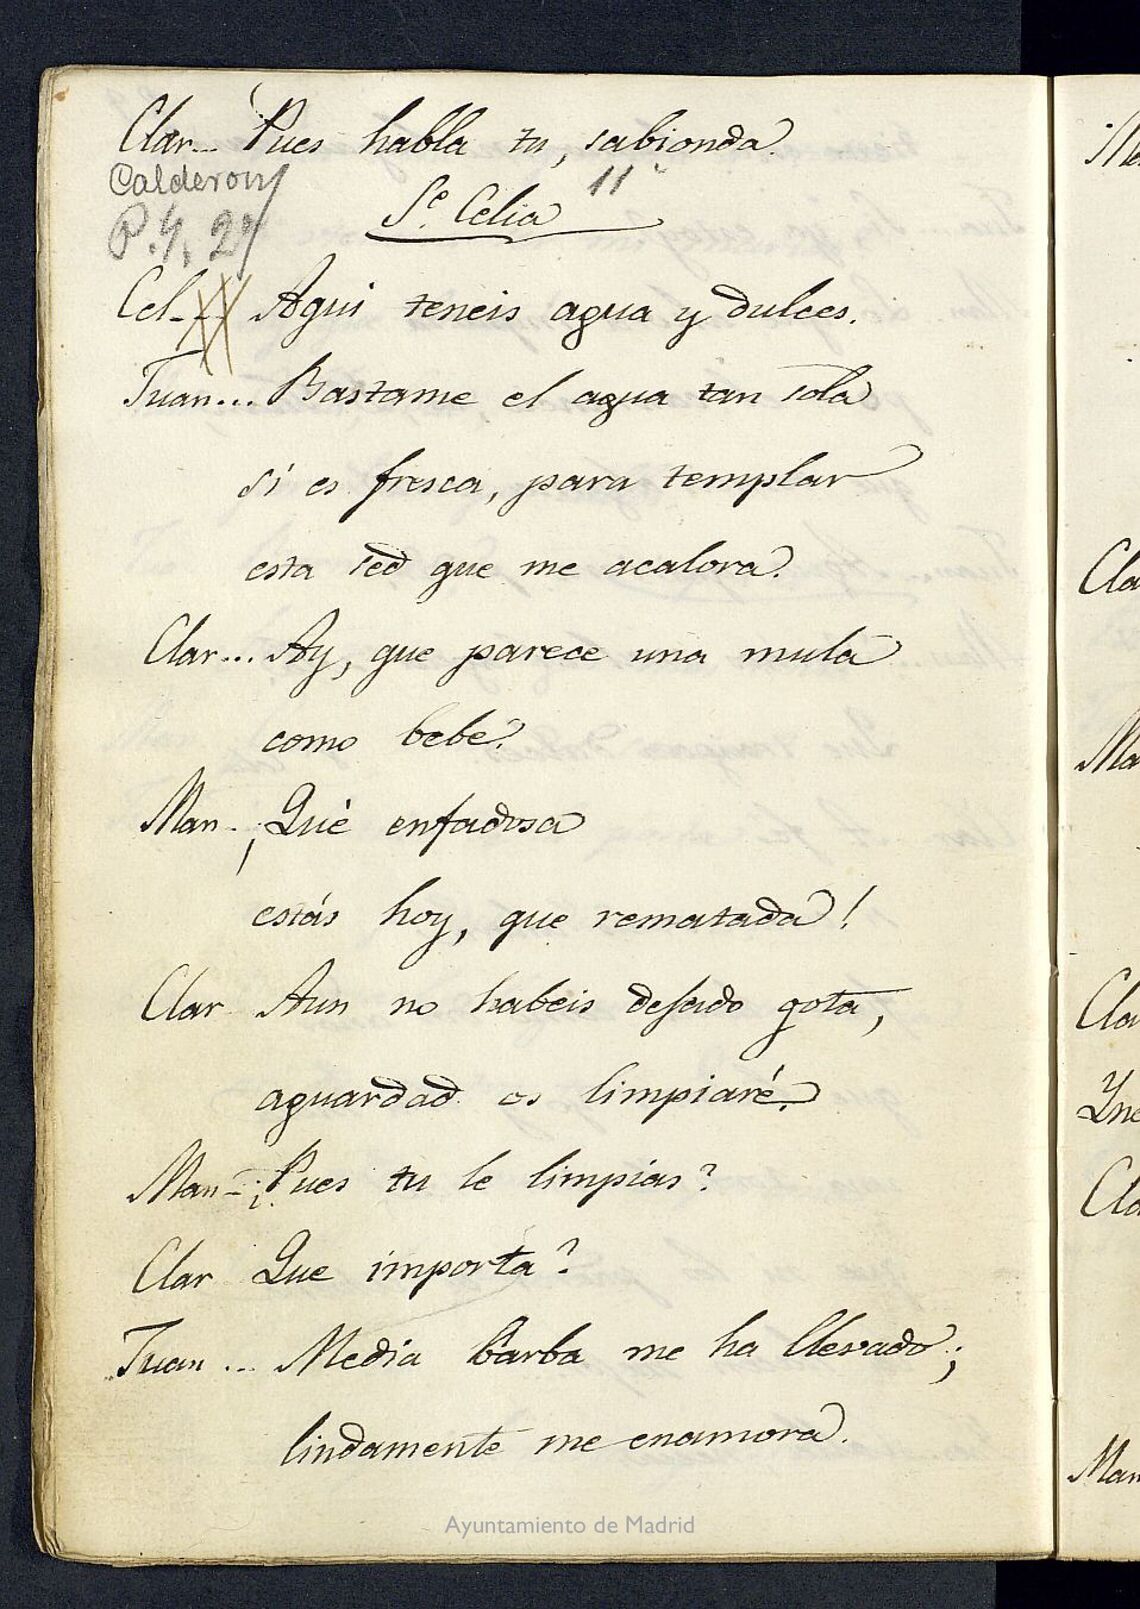 Clar... Pues habla tu, sabionda.
Calderon
11
Se. Celia
P. 4, 2
Cel--- Aqui teneis agua y dulces.
Juan... Bastame el agua tan sola
si es fresca, para templar
esta sed que me acalora.
Clar... Ay, que parece una mula
como bebe.
Man. ¡Qué enfadosa
estás hoy, que rematada!
Clar Aun no habeis dejado gota,
aguardad os limpiaré.
Man- ¿Pues tu le limpias?
Clar Que importa?
Juan... Media barba me ha llevado;
lindamente me enamora.
Cla
Ma
Cla
Yne
Cla
Man
Ayuntamiento de Madrid